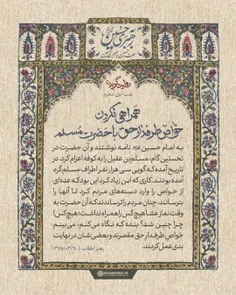 همراهی نکردن
خواص طرفدار حق با حضرت مسلم
به امام حسین نامه نوشتند و آن حضرت در
نخستین گام، مسلم بن عقیل را به کوفه اعزام کرد. در
تاریخ آمده که گویی سی هزار نفر اطراف مسلم گرد
آمده بودند. کاری که ابن زیاد کرد این بود که عده‌ای
از خواص را وارد دسته‌های مردم کرد تا آنها را
بترسانند. چنان مردم را ترساندند که آن حضرت به
وقت نماز عشا هیچ کس را همراه نداشت؛ هیچ کس!
چرا چنین شد؟ بنده که نگاه می‌کنم، می‌بینم
خواص طرفدار حق مقصرند و بعضی‌شان در نهایت
بدی عمل کردند.
رهبر انقلاب